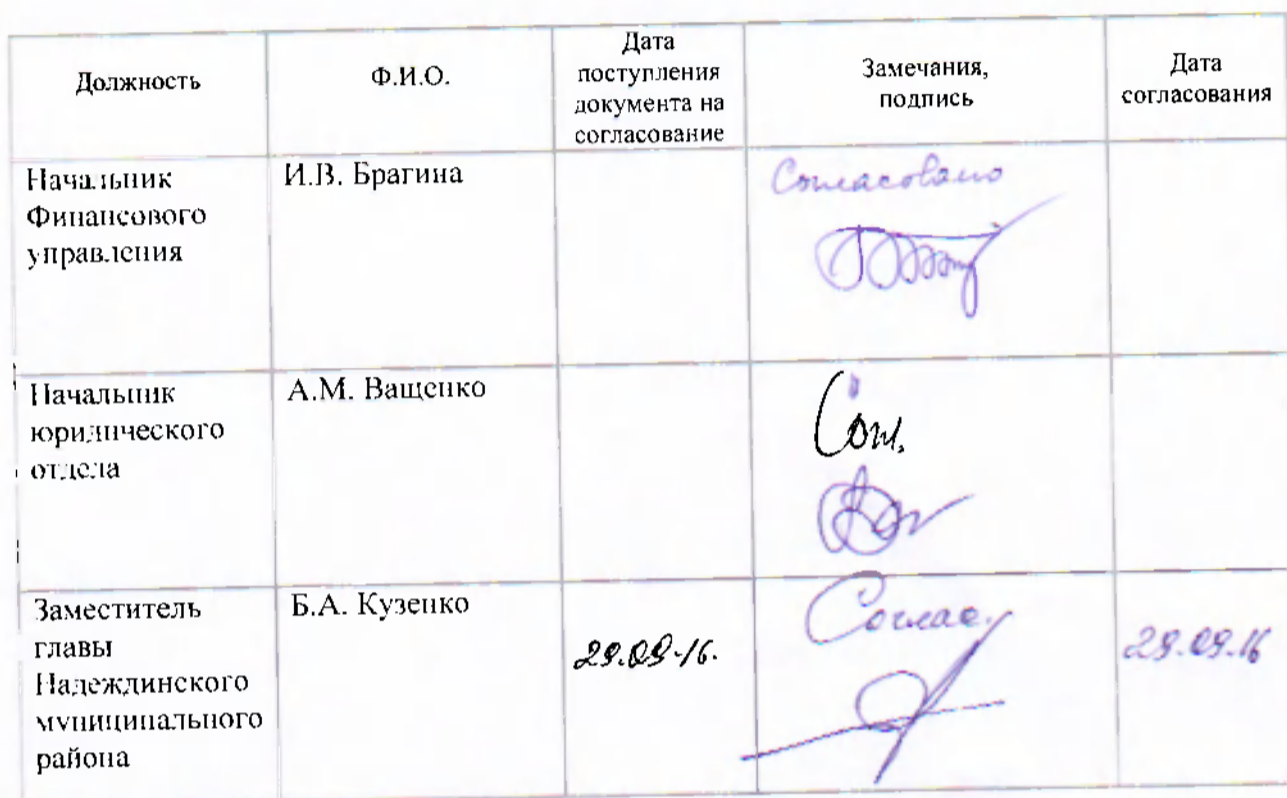 Должность
Ф.И.О.
Дата
поступления
документа на
согласование
Замечания,
подпись
Дата
согласования
Начальник
Финансового
управления
И.В. Брагина
Согласовано
Начальник
юридического
отдела
А.М. Ващенко
Согл.
Заместитель
главы
Надеждинского
муниципального
района
Б.А. Кузенко
29.09.16.
Соглас.
29.09.16